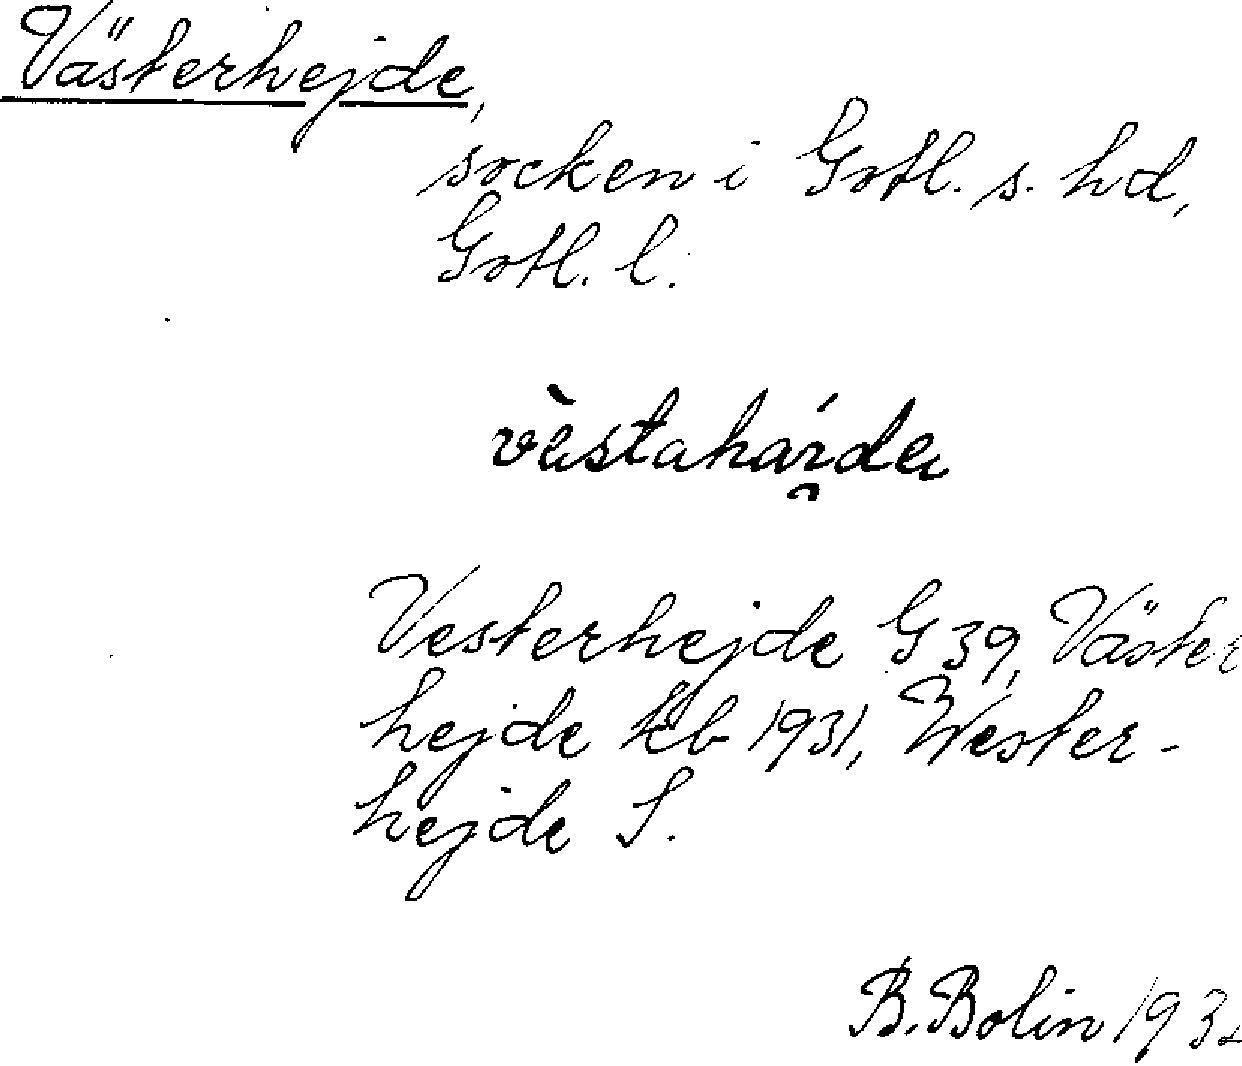 Västerhejde,
socken i Gotl. s. hd,
Gotl. l.
Vesterhejde G 39, Väster
hejde kb 1931, Wester-
hejde S.
B. Bolin